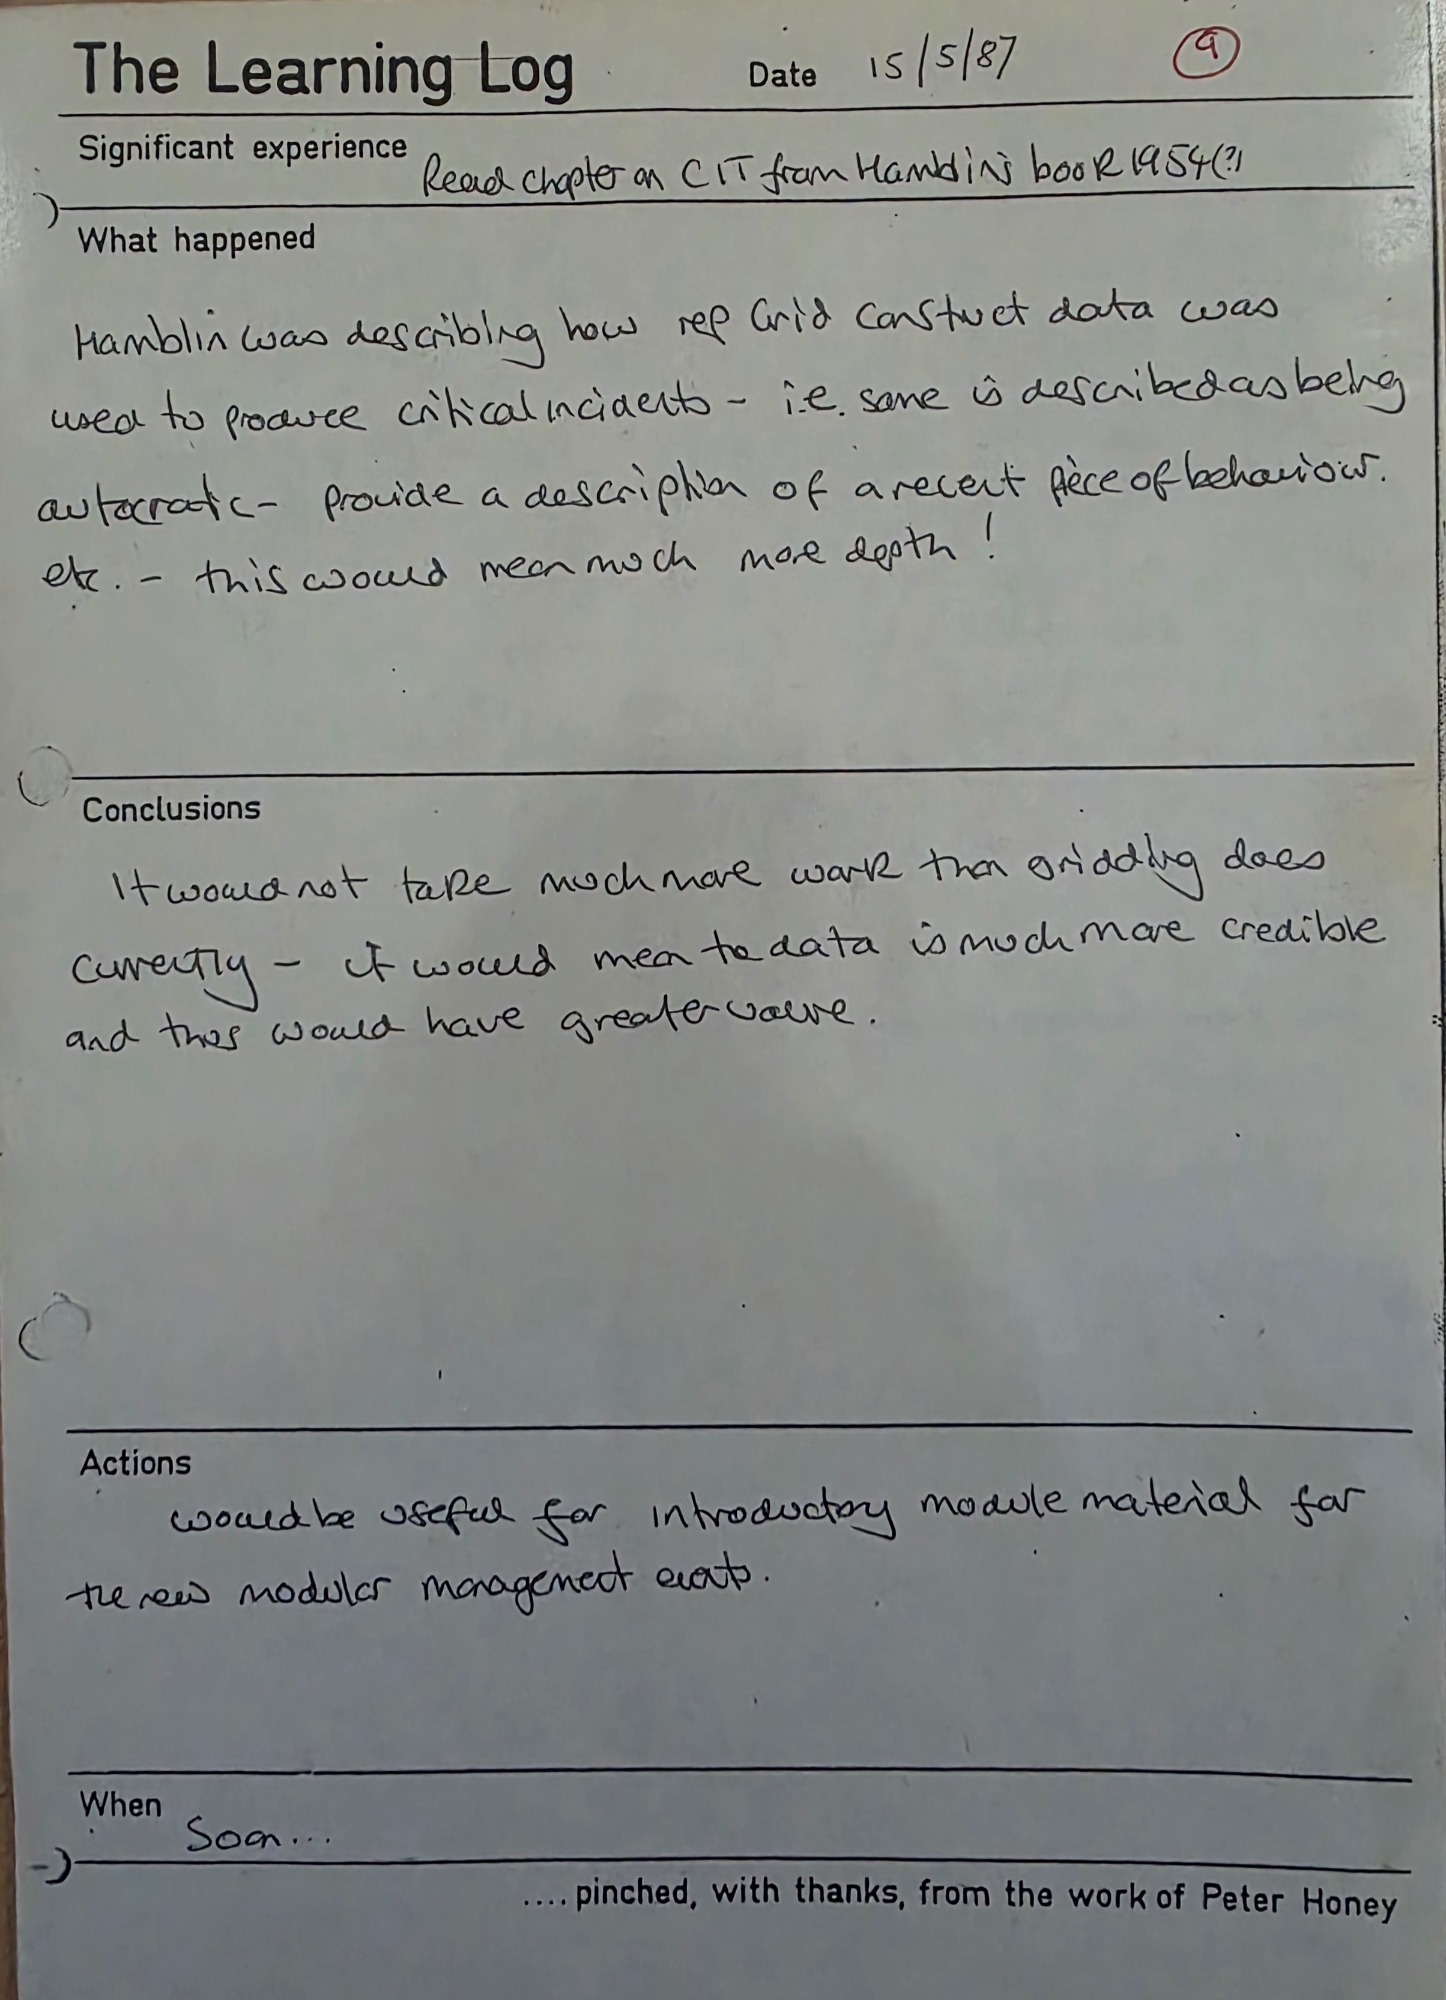 The Learning Log Date 15/5/87 9
Significant experience Read chapter on CIT from Hamblin's book 1954(?)
What happened
Hamblin was describing how rep Grid construct data was
used to produce critical incidents - i.e. some is described as being
autocratic - provide a description of a recent piece of behaviour.
etc. - this would mean much more depth!
Conclusions
It would not take much more work than gridding does
currently - it would mean te data is much more credible
and thus would have greater value.
Actions
would be useful for introductory module material for
the new modular management events.
When
Soon...
.... pinched, with thanks, from the work of Peter Honey